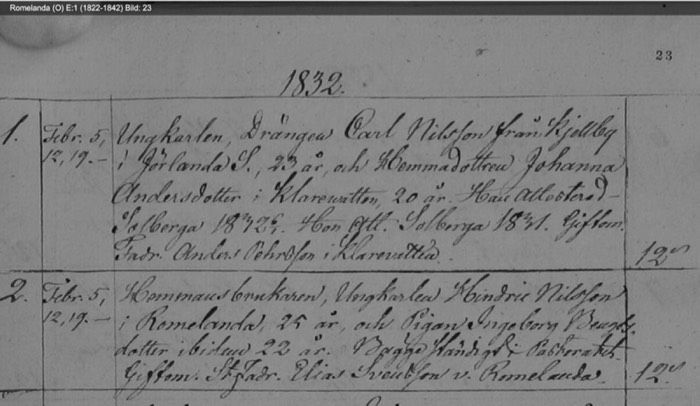 Romelanda (O) E:1 (1822-1842) Bild: 23
23
1832.
1. Febr. 5, Ungkarlen, Drängen Carl Nilsson från Kjellby
12, 19.— i Jörlanda S., 23 år, och Hemmadottren Johanna
Andersdotter i Klarevatten, 20 år. Han
Solberga 1832. Hon Att. Solberga 1831. Giftom.
Fadr. Anders Pehrsson i Klarevatten. 12
2. Febr. 5, Hemmansbrukaren, Ungkarlen Hindric Nilsson
12, 19.— i Romelanda, 25 år, och Pigan Ingeborg Bengts-
dotter ibidem 22 år. Bägge ständigt i Pastoratet.
Giftom. St.Fadr. Elias Svensson v. Romelanda. 12